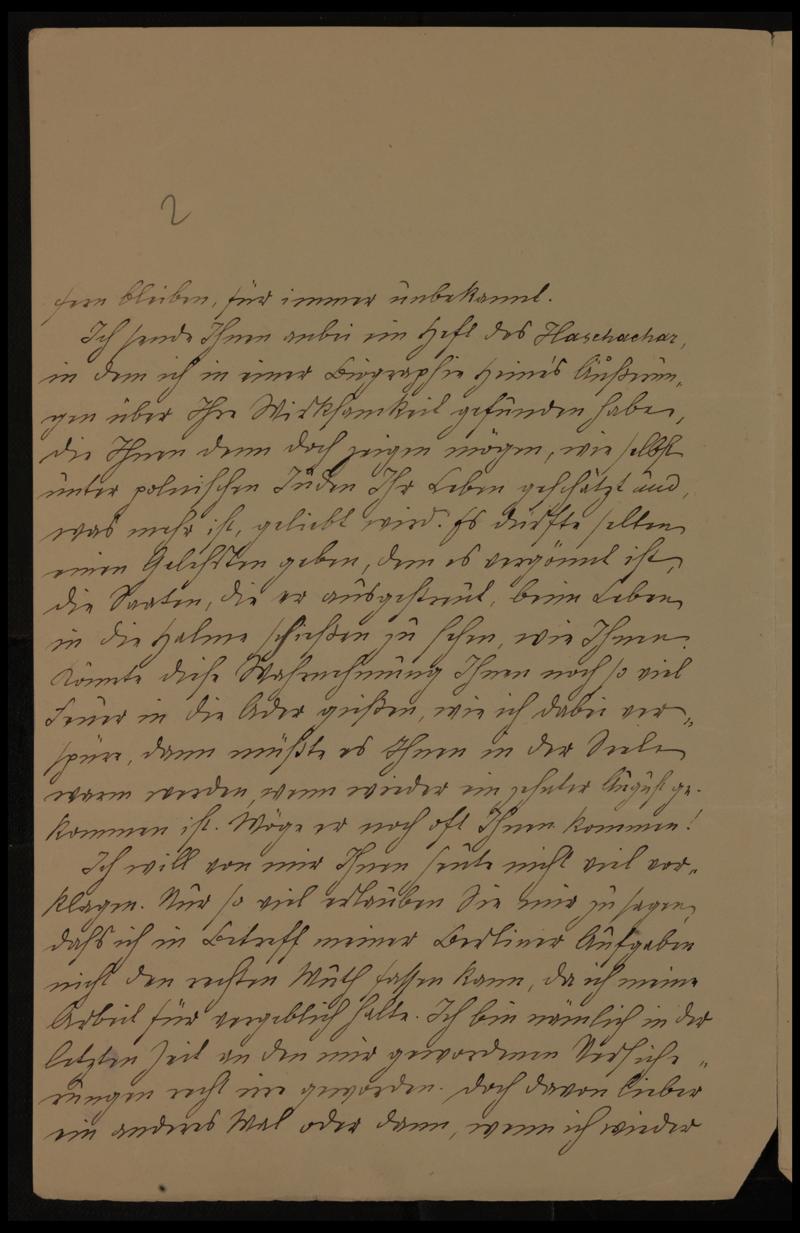 2
fern bleiben, für immer unbekannt.
Ich sende Ihnen anbei ein Heft des Haschachar,
in dem ich in einer Biographie Heine's Äußerun-
gen über Ihre Wirksamkeit gefunden habe,
die Ihnen denn doch zeigen mögen, wie selbst
unter polnischen Juden Ihr Leben geschätzt und,
was mehr ist, geliebt wird. Es dürfte selten
einen Gelehrten geben, dem es vergönnt ist,
die Saaten, die er ausgestreut, beim Leben
in die Halme schießen zu sehen, wie Ihnen.
Könnte diese Wahrnehmung Ihnen noch so viel
Feuer in die Ader gießen, wie ich dabei ver-
spüre, dann müßte es Ihnen in der Seele
warm werden, wenn wieder ein zehnter August ge-
kommen ist. Möge er noch oft Ihnen kommen!
Ich will von mir Ihnen heute nicht viel vor-
klagen. Nur so viel erlauben Sie mir zu sagen,
dass ich in Betreff meiner Berliner Aufgaben
nicht den rechten Muth fassen kann, da ich meine
Arbeit für vergeblich halte. Ich bin nämlich in der
letzten Zeit an den mir gewordenen Versiche-
rungen recht irre geworden. Doch davon lieber
ein anderes Mal oder dann, wenn ich wieder